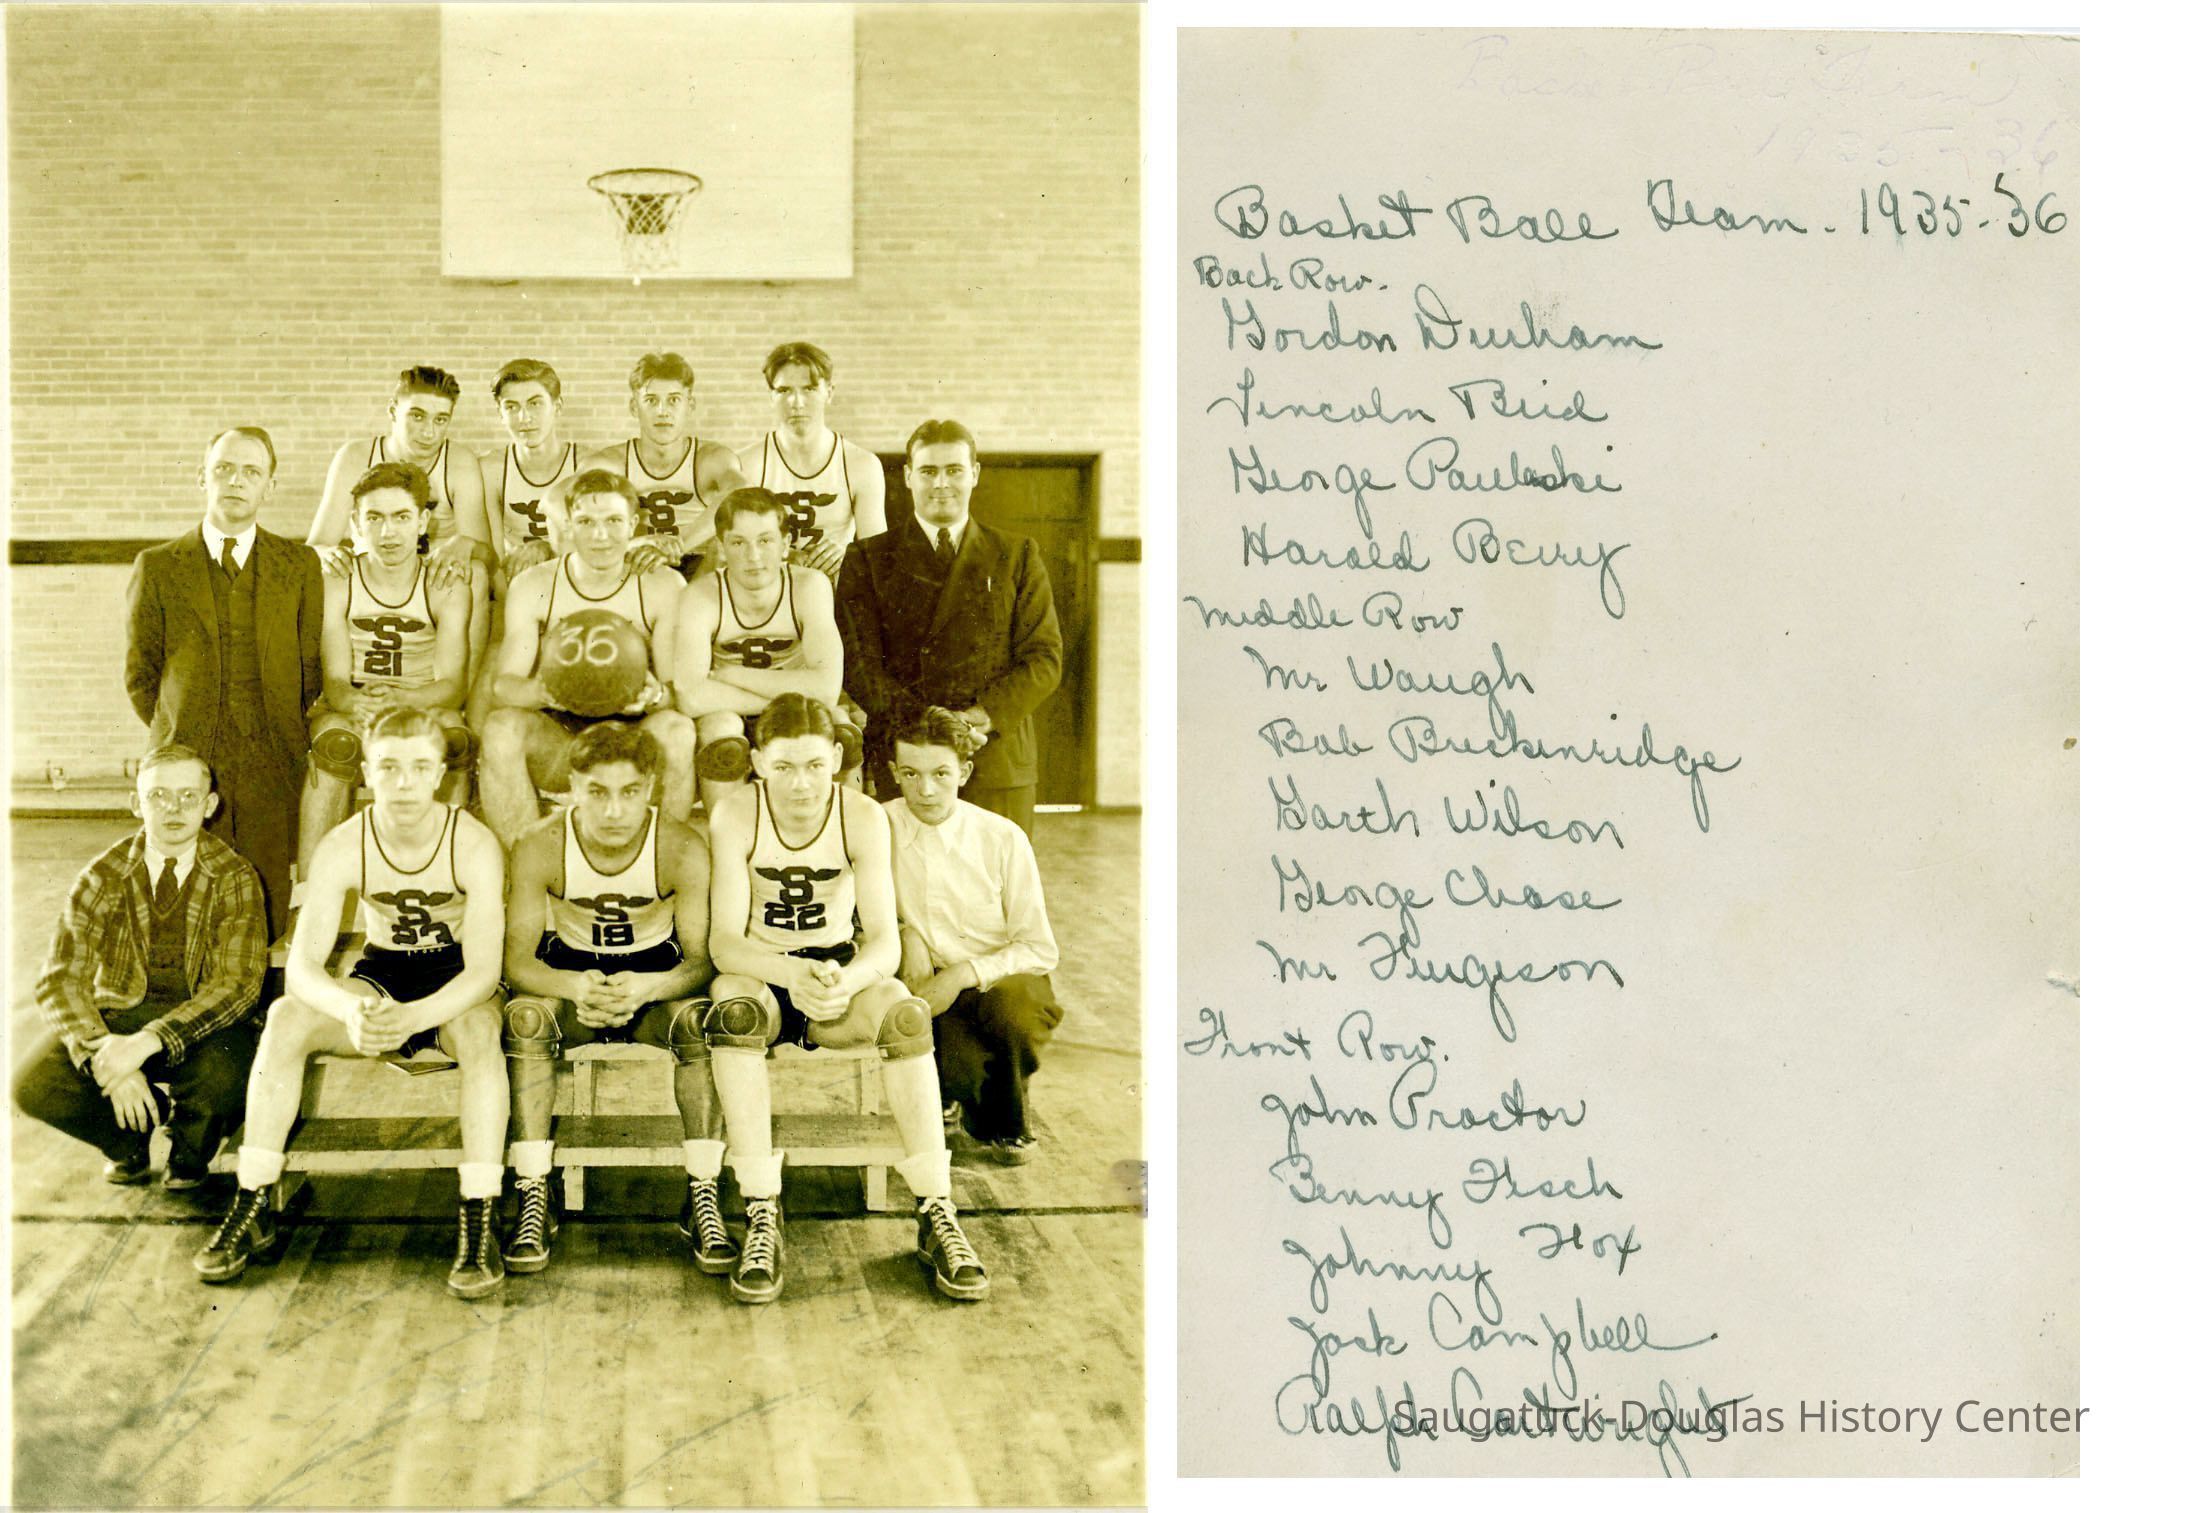 S
S
S
S
21
36
S
S
S
19
S
22
Basket Ball Team
1935-36
Basket Ball Team. 1935-36
Back Row.
Gordon Durham
Lincoln Bird
George Paulaski
Harold Berry
Middle Row
Mr Waugh
Bob Breckenridge
Garth Wilson
George Chase
Mr Furgeson
Front Row.
John Proctor
Benny Fisch
Johnny Fox
Jack Campbell
Ralph Cartwright
Saugatuck-Douglas History Center